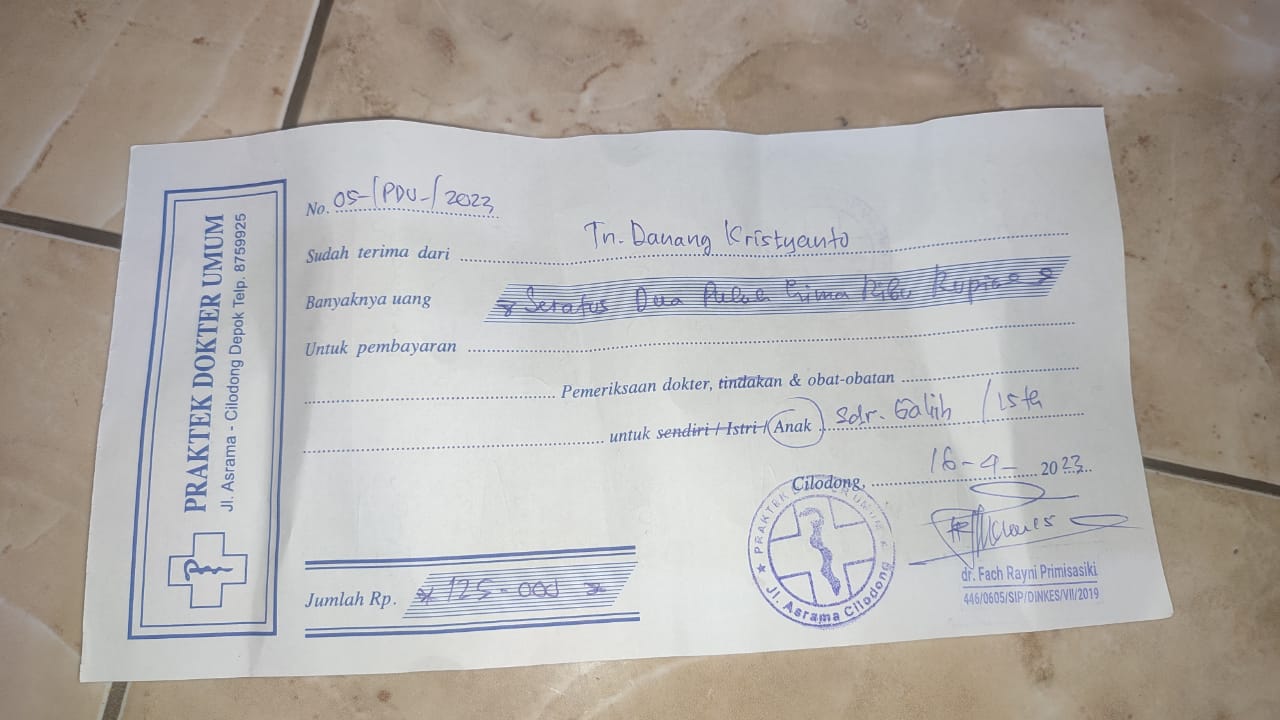 PRAKTEK DOKTER UMUM
Jl. Asrama - Cilodong Depok Telp. 8759925
No. 05-/PDU-/2023
Sudah terima dari Tn. Danang Kristyanto
Banyaknya uang Seratus Dua Puluh Lima Ribu Rupiah
Untuk pembayaran
Pemeriksaan dokter, tindakan & obat-obatan
untuk sendiri / Istri / Anak Sdr. Galih /
Cilodong, 16-4- 2023
Jumlah Rp. 125-000
PRAKTEK DOKTER UMUM
Jl. Asrama Cilodong
dr. Fach Rayni Primisasiki
446/0605/SIP/DINKES/VII/2019